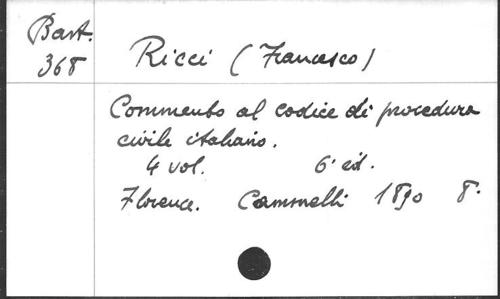 Bart.
368
Ricci (Francesco)
Commento al codice di procedura
civile italiano.
4 vol. 6ᵉ éd.
Florence. Cammelli 1890 8°.